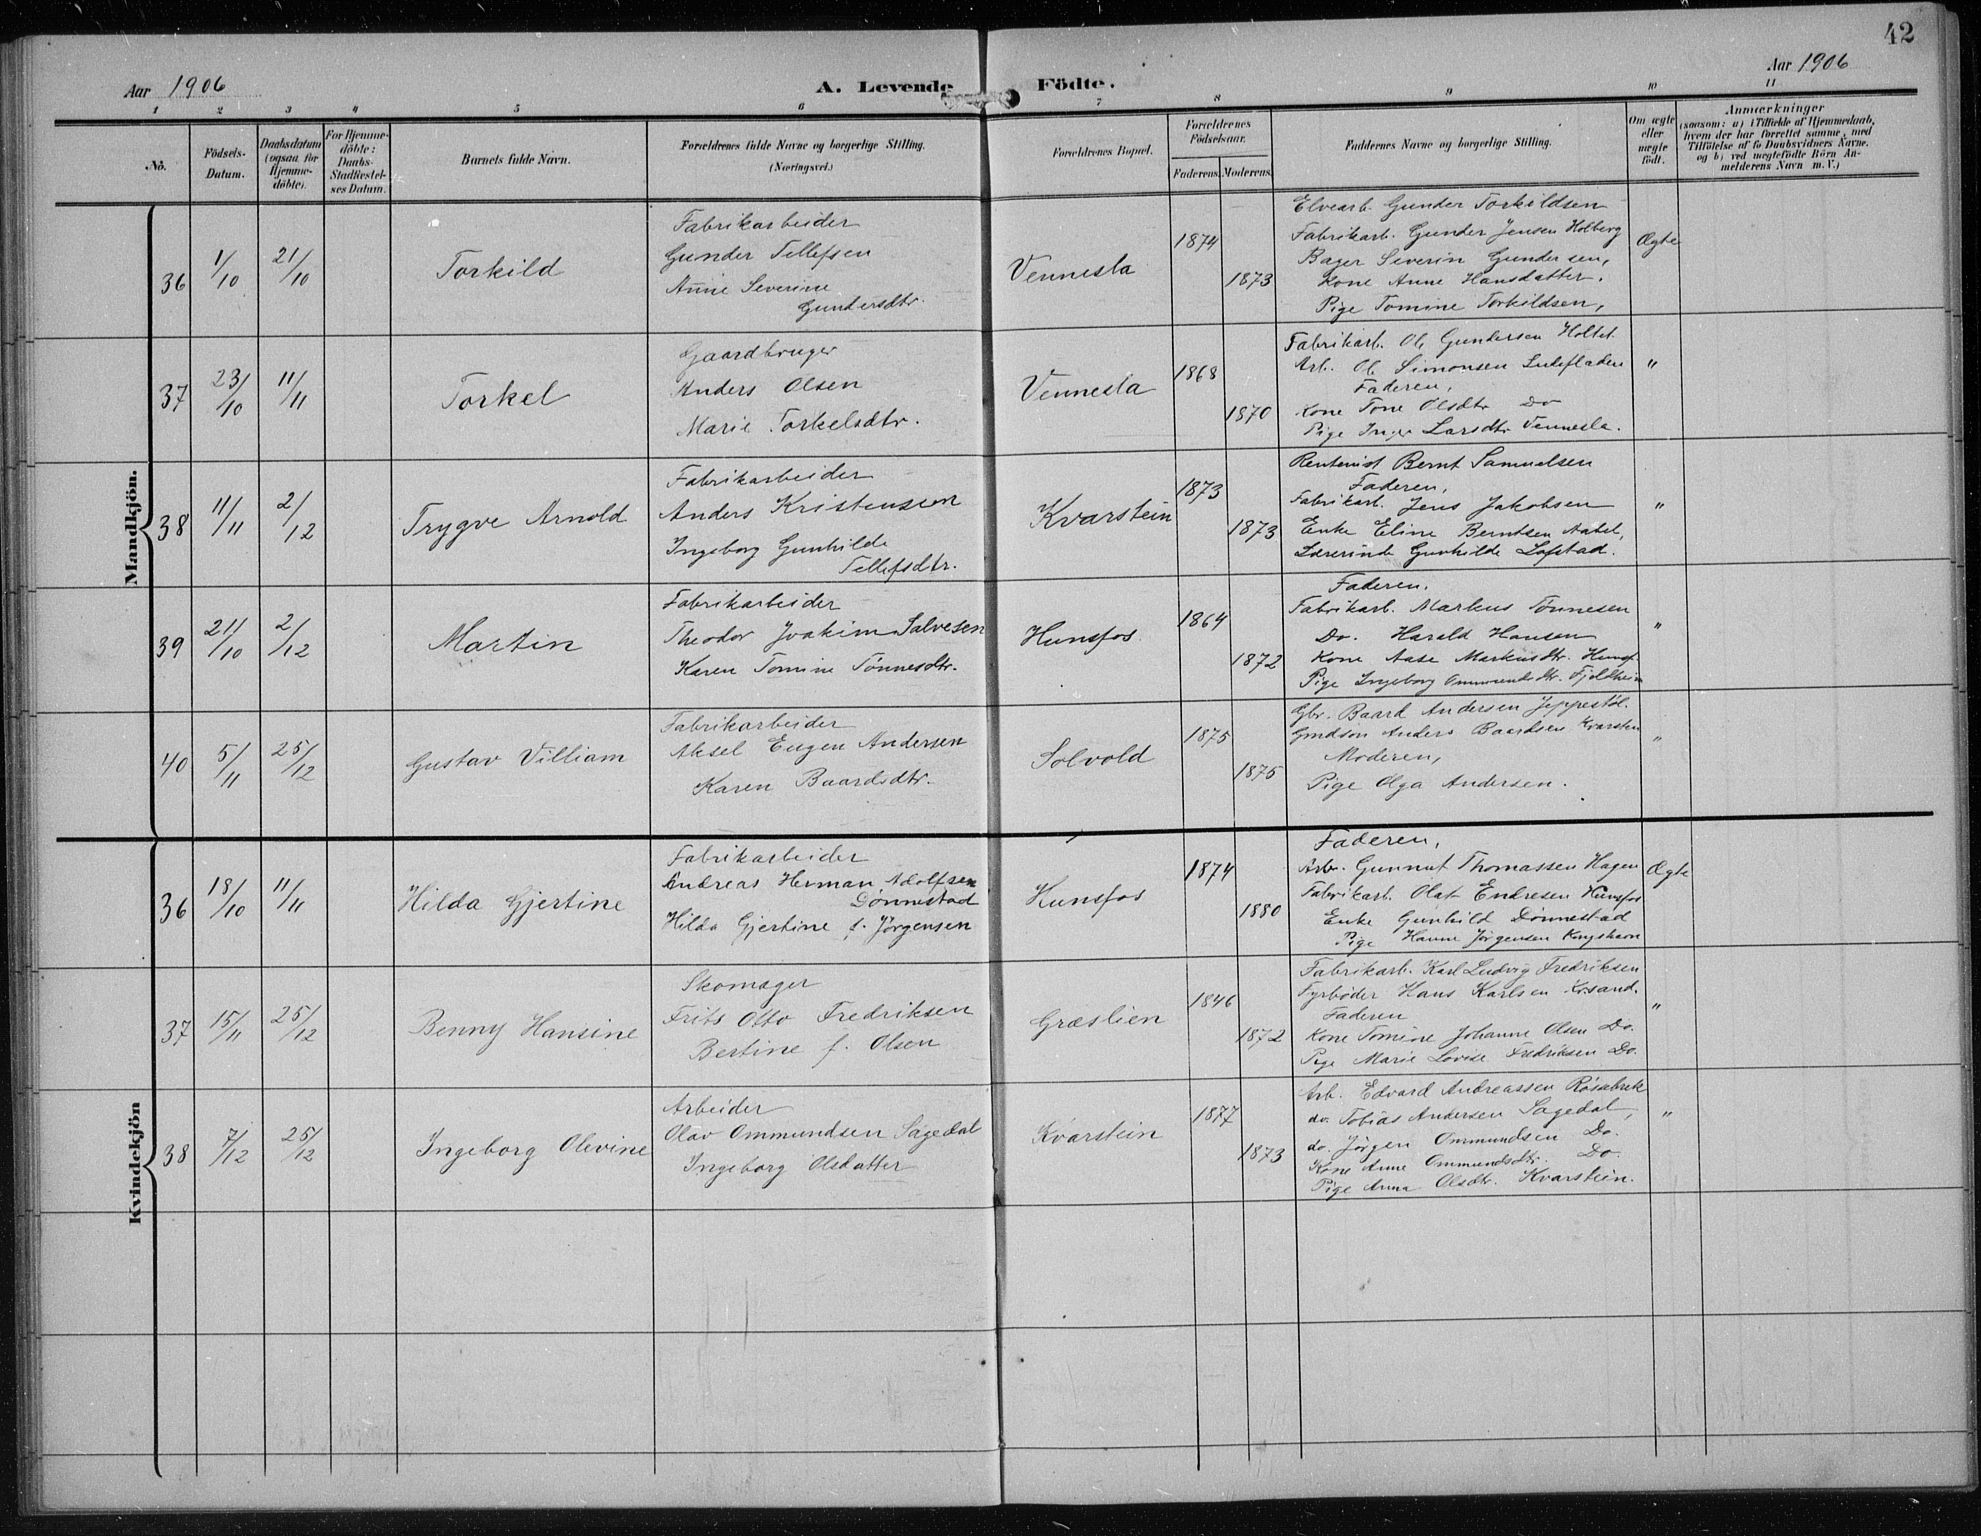 42
Aar 1906
A. Levende Födte.
Aar 1906
1 2 3 4 5 6 7 8 9 10 11
No.
Födsels-
Datum.
Daabsdatum
(ogsaa for
Hjemme-
döbte).
For Hjemme-
döbte:
Daabs-
Stadfæstel-
ses Datum.
Barnets fulde Navn.
Forældrenes fulde Navne og borgerlige Stilling.
(Næringsvei.)
Forældrenes Bopæl.
Forældrenes
Födselsaar.
Faderens. Moderens.
Faddernes Navne og borgerlige Stilling.
Om ægte
eller
uægte
født.
Anmærkninger
(saasom: a) i Tilfælde af Hjemmedaab,
hvem der har forrettet samme, med
Tilföielse af to Daabsvidners Navne.
og b) ved uægtefödte Börn An-
melderens Navn m. V.)
Mandkjön.
36 1/10 21/10 Torkild
Fabrikarbeider
Gunder Tellefsen
Anne Severine
Gundersdtr.
Vennesla
1874
1873
Elvearb. Gunder Torkildsen
Fabrikarb. Gunder Jensen Holberg
Bager Severin Gundersen,
Kone Anne Hansdatter.
Pige Tomine Torkildsen,
Ægte
37 23/10 11/11 Torkel
Gaardbruger
Anders Olsen
Marie Torkelsdtr.
Vennesla
1868
1870
Fabrikarb. Ole Gundersen Holtet
Arb. Ole Simonsen
Faderen,
Kone Tone Olsdtr Do
Pige Inge Larsdtr Vennesla.
"
38 11/11 2/12 Trygve Arnold
Fabrikarbeider
Anders Kristensen
Ingeborg Gunhilde
Tellefsdtr.
Kvarstein
1873
1873
Rentenist Bernt Samuelsen
Faderen,
Fabrikarb. Jens Jakobsen
Enke Eline Berntsen
Lærerinde Gunhilde Lofstad.
"
39 21/10 2/12 Martin
Fabrikarbeider
Theodor Joakim Salvesen
Karen Tomine Tönnesdtr.
Hunsfos.
1864
1872
Faderen.
Fabrikarb. Markus Tönnesen
Do. Harald Hansen
Kone Aase Markusdtr. Hunsf.
Pige Ingeborg Ommundsdtr. Fjeldheim
"
40 5/11 25/12 Gustav Villiam
Fabrikarbeider
Aksel Eugen Andersen
Karen Baardsdtr.
Solvold
1875
1875
Gbr. Baard Andersen Jeppestöl.
Gmdsön Anders Baardsen Kvarsten
Moderen,
Pige Olga Andersen.
"
Kvindekjön
36 18/10 11/11 Hilda Gjertine
Fabrikarbeider
Andreas Herman Adolfsen
Dönnestad
Hilda Gjertine f. Jörgensen
Hunsfos
1874
1880
Faderen,
Arb. Gunnut Thomassen Hagen
Fabrikarb. Olaf Endresen Hunsfos
Enke Gunhild Dönnestad
Pige Hanne Jörgensen Kongshavn
Ægte
37 15/11 25/12 Benny Hansine
Skomager
Frits Otto Fredriksen
Bertine f. Olsen
Græslien
1846
1872
Fabrikarb. Karl Ludvig Fredriksen
Fyrböder Hans Karlsen Krsand.
Faderen
Kone Tomine Johanne Olsen Do.
Pige Marie Lovise Fredriksen Do.
"
38 7/12 25/12 Ingeborg Olevine
Arbeider
Olav Ommundsen Sagedal
Ingeborg Olsdatter
Kvarstein
1877
1873
Arb. Edvard Andreassen
do. Tobias Andersen Sagedal,
do. Jörgen Ommundsen Do.
Kone Anne Ommundsdtr. Do.
Pige Anna Olsdtr. Kvarstein.
"